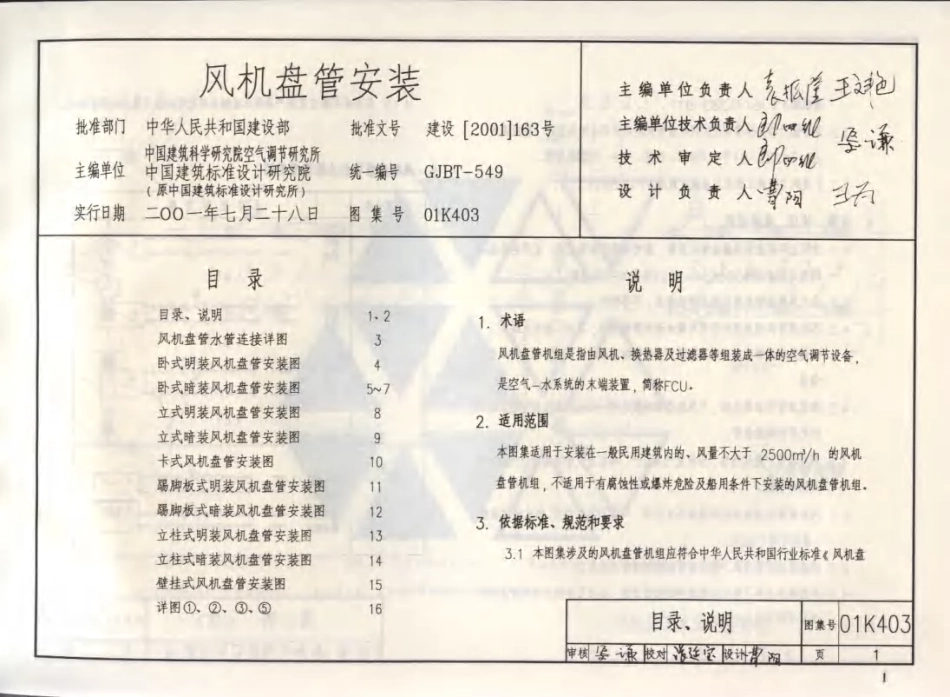 风机盘管安装
批准部门 中华人民共和国建设部 批准文号 建设[2001]163号
主编单位 中国建筑科学研究院空气调节研究所
中国建筑标准设计研究院
(原中国建筑标准设计研究所)
统一编号 GJBT-549
实行日期 二OO一年七月二十八日 图集号 01K403
主编单位负责人
主编单位技术负责人
技术审定人
设计负责人
目 录
目录、说明 1、2
风机盘管水管连接详图 3
卧式明装风机盘管安装图 4
卧式暗装风机盘管安装图 5~7
立式明装风机盘管安装图 8
立式暗装风机盘管安装图 9
卡式风机盘管安装图 10
踢脚板式明装风机盘管安装图 11
踢脚板式暗装风机盘管安装图 12
立柱式明装风机盘管安装图 13
立柱式暗装风机盘管安装图 14
壁挂式风机盘管安装图 15
详图①、②、③、⑤ 16
说 明
1. 术语
风机盘管机组是指由风机、换热器及过滤器等组装成一体的空气调节设备,
是空气-水系统的末端装置, 简称FCU。
2. 适用范围
本图集适用于安装在一般民用建筑内的、风量不大于 2500m³/h 的风机
盘管机组, 不适用于有腐蚀性或爆炸危险及船用条件下安装的风机盘管机组。
3. 依据标准、规范和要求
3.1 本图集涉及的风机盘管机组应符合中华人民共和国行业标准《风机盘
目录、说明 图集号 01K403
审核 校对 设计 页 1
1